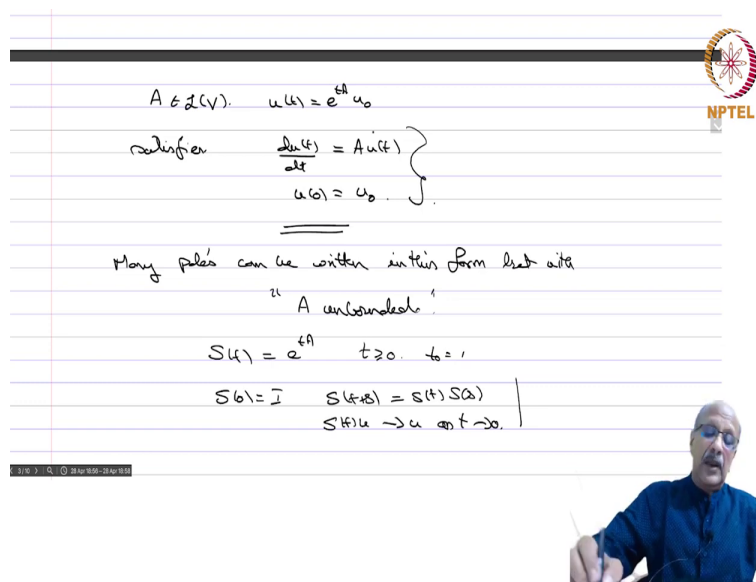 A ∈ L(V). u(t) = e^{tA} u₀
satisfies du(t)/dt = Au(t)
u(0) = u₀.
Many pde's can be written in this form but with
"A unbounded".
S(t) = e^{tA} t ≥ 0.
S(0) = I S(t+s) = S(t) S(s)
S(t)u → u as t → 0.
NPTEL
3 / 10
28 Apr 18:56 – 28 Apr 18:56